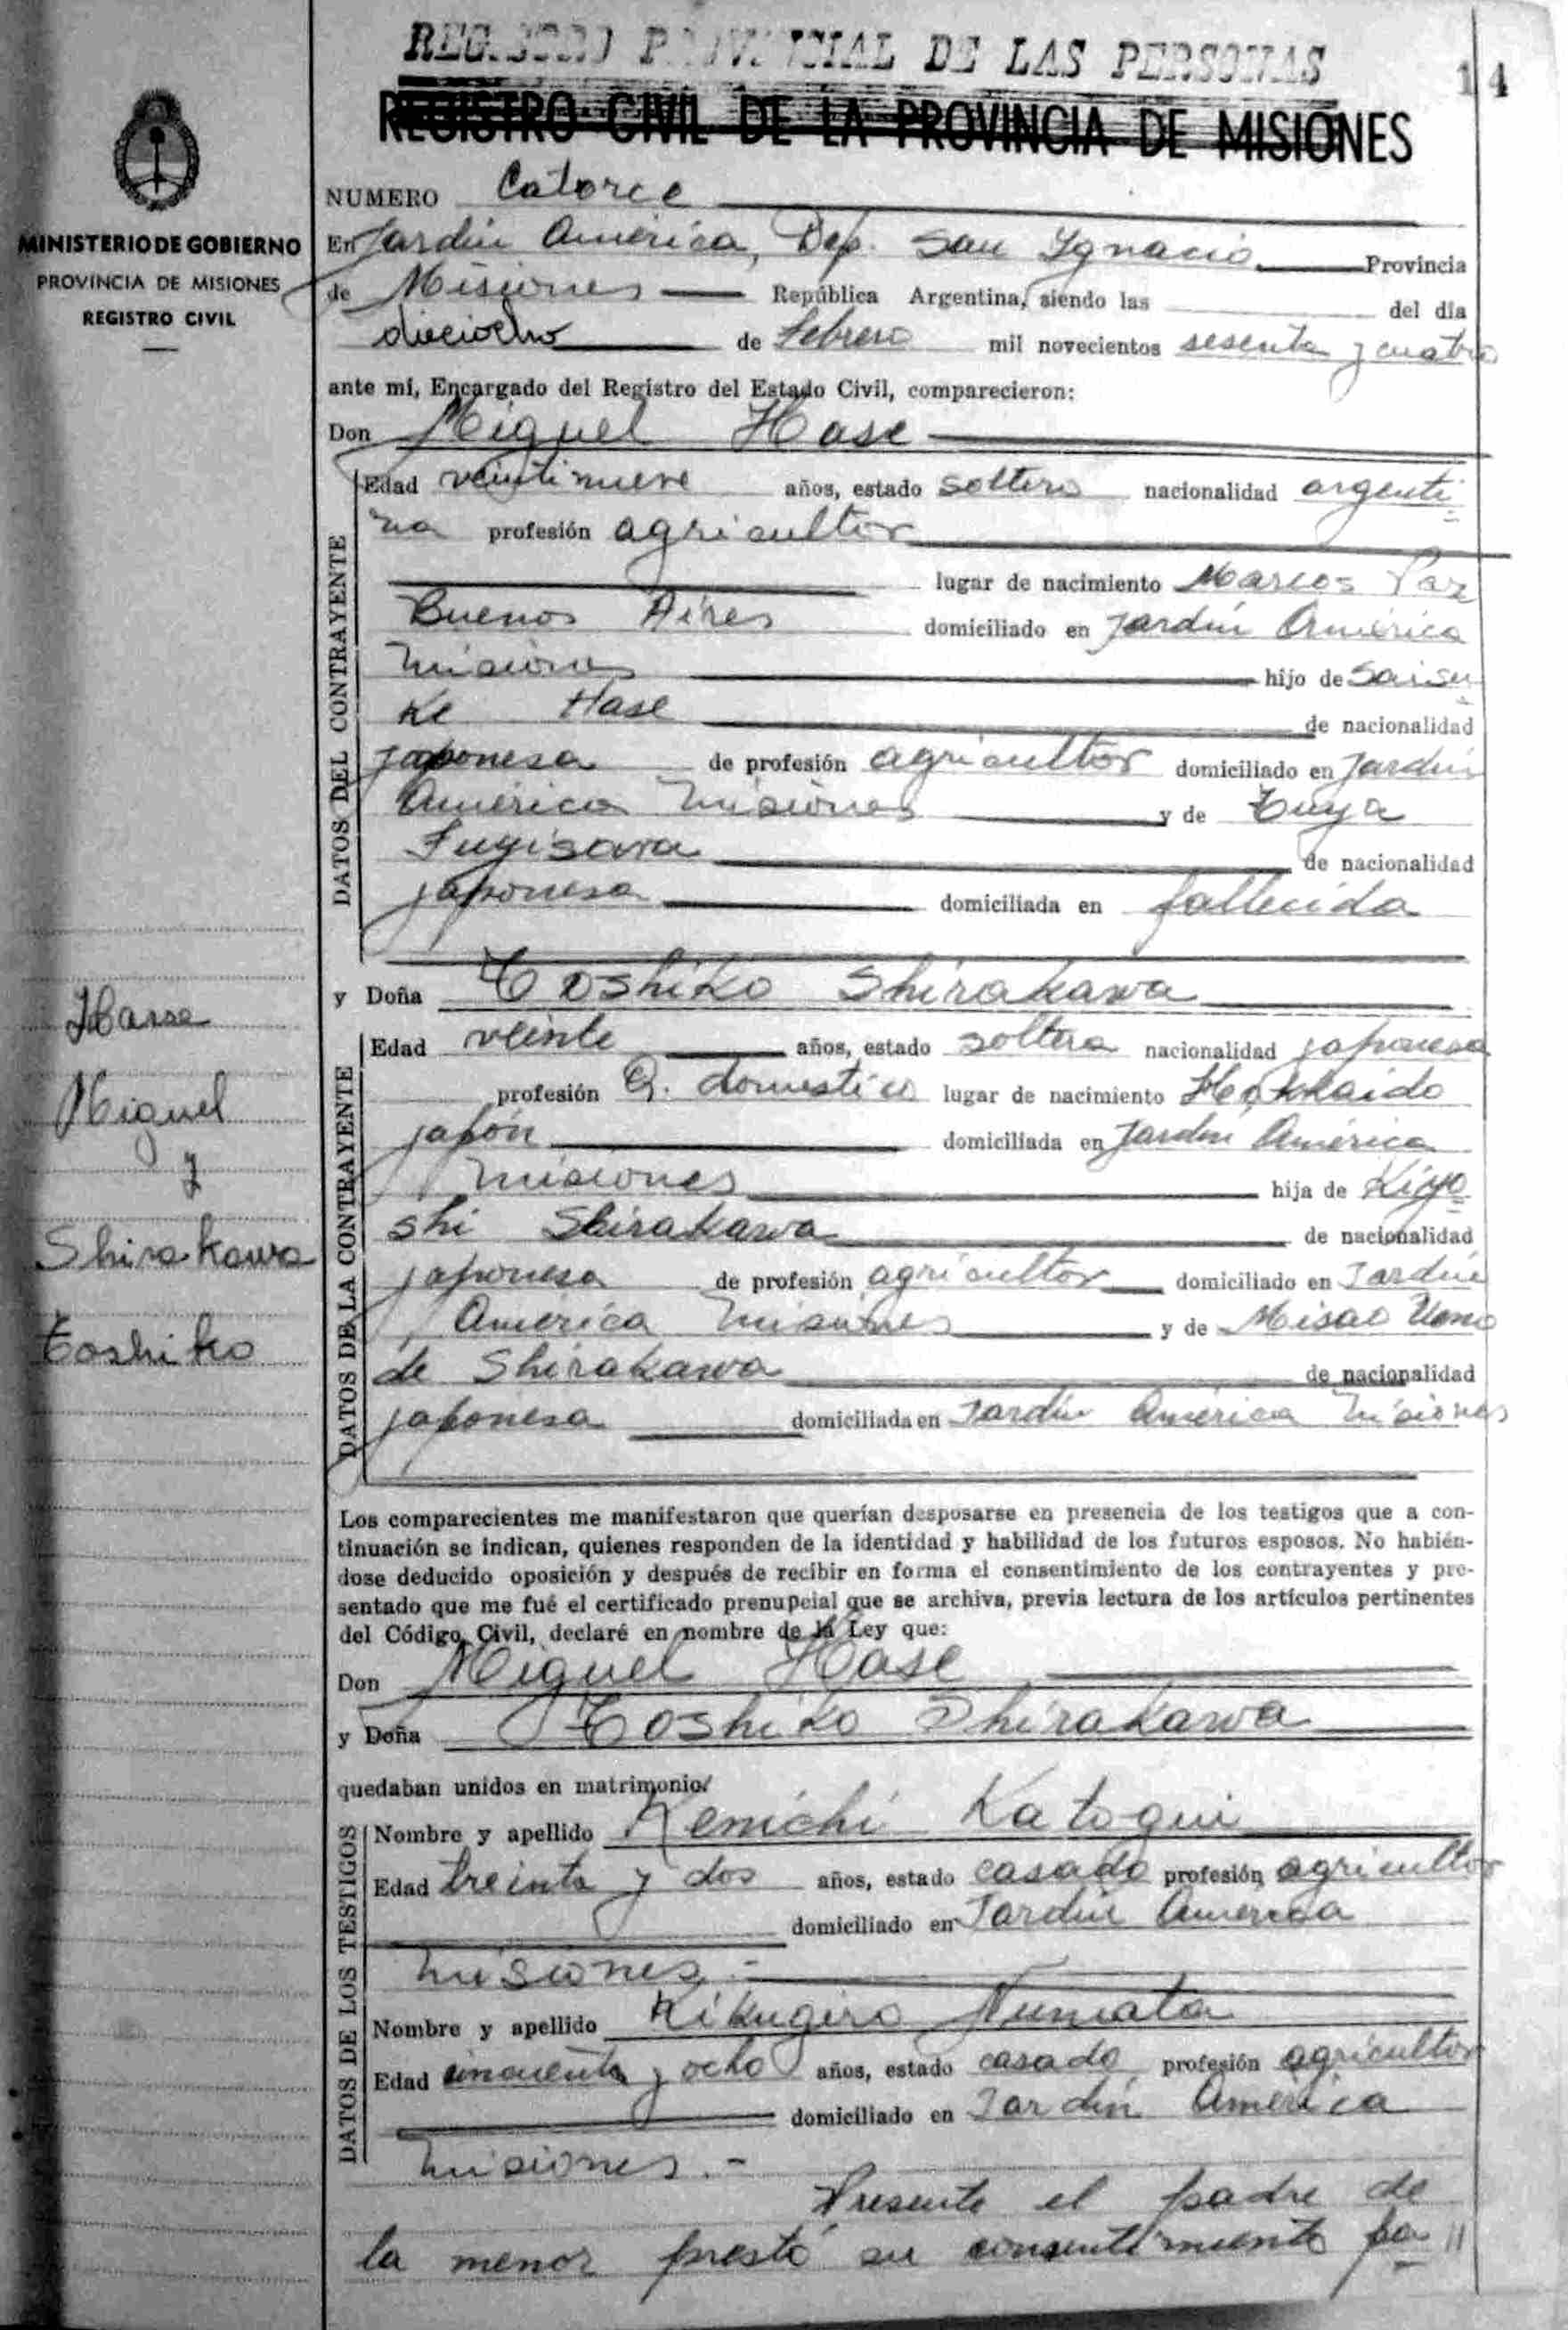 REGISTRO PROVINCIAL DE LAS PERSONAS
14
REGISTRO CIVIL DE LA PROVINCIA DE MISIONES
MINISTERIO DE GOBIERNO
PROVINCIA DE MISIONES
REGISTRO CIVIL
NUMERO Catorce
En Jardín América, Dep. San Ignacio Provincia
de Misiones República Argentina, siendo las del día
dieciocho de febrero mil novecientos sesenta y cuatro
ante mi, Encargado del Registro del Estado Civil, comparecieron:
Don Miguel Hase
DATOS DEL CONTRAYENTE
Edad veintinueve años, estado soltero nacionalidad argenti-
na profesión agricultor
lugar de nacimiento Marcos Paz
Buenos Aires domiciliado en Jardín América
Misiones hijo de Saisu-
ke Hase de nacionalidad
japonesa de profesión agricultor domiciliado en Jardín
América Misiones y de Tuya
Fugisava de nacionalidad
japonesa domiciliada en fallecida
y Doña Toshiko Shirakawa
Hasse
Miguel
y
Shirakawa
Toshiko
DATOS DE LA CONTRAYENTE
Edad veinte años, estado soltera nacionalidad japonesa
profesión Q. domestico lugar de nacimiento Hokkaido
japón domiciliada en Jardín América
Misiones hija de Kiyo-
shi Shirakawa de nacionalidad
japonesa de profesión agricultor domiciliado en Jardín
América Misiones y de Misao Ueno
de Shirakawa de nacionalidad
japonesa domiciliada en Jardín América Misiones
Los comparecientes me manifestaron que querían desposarse en presencia de los testigos que a con-
tinuación se indican, quienes responden de la identidad y habilidad de los futuros esposos. No habién-
dose deducido oposición y después de recibir en forma el consentimiento de los contrayentes y pre-
sentado que me fué el certificado prenupcial que se archiva, previa lectura de los artículos pertinentes
del Código Civil, declaré en nombre de la Ley que:
Don Miguel Hase
y Doña Toshiko Shirakawa
quedaban unidos en matrimonio
DATOS DE LOS TESTIGOS
Nombre y apellido Kenichi Katogui
Edad treinta y dos años, estado casado profesión agricultor
domiciliado en Jardín América
Misiones.-
Nombre y apellido Kikugiro Numata
Edad cincuenta y ocho años, estado casado profesión agricultor
domiciliado en Jardín América
Misiones.-
Presente el padre de
la menor prestó su consentimiento pa //